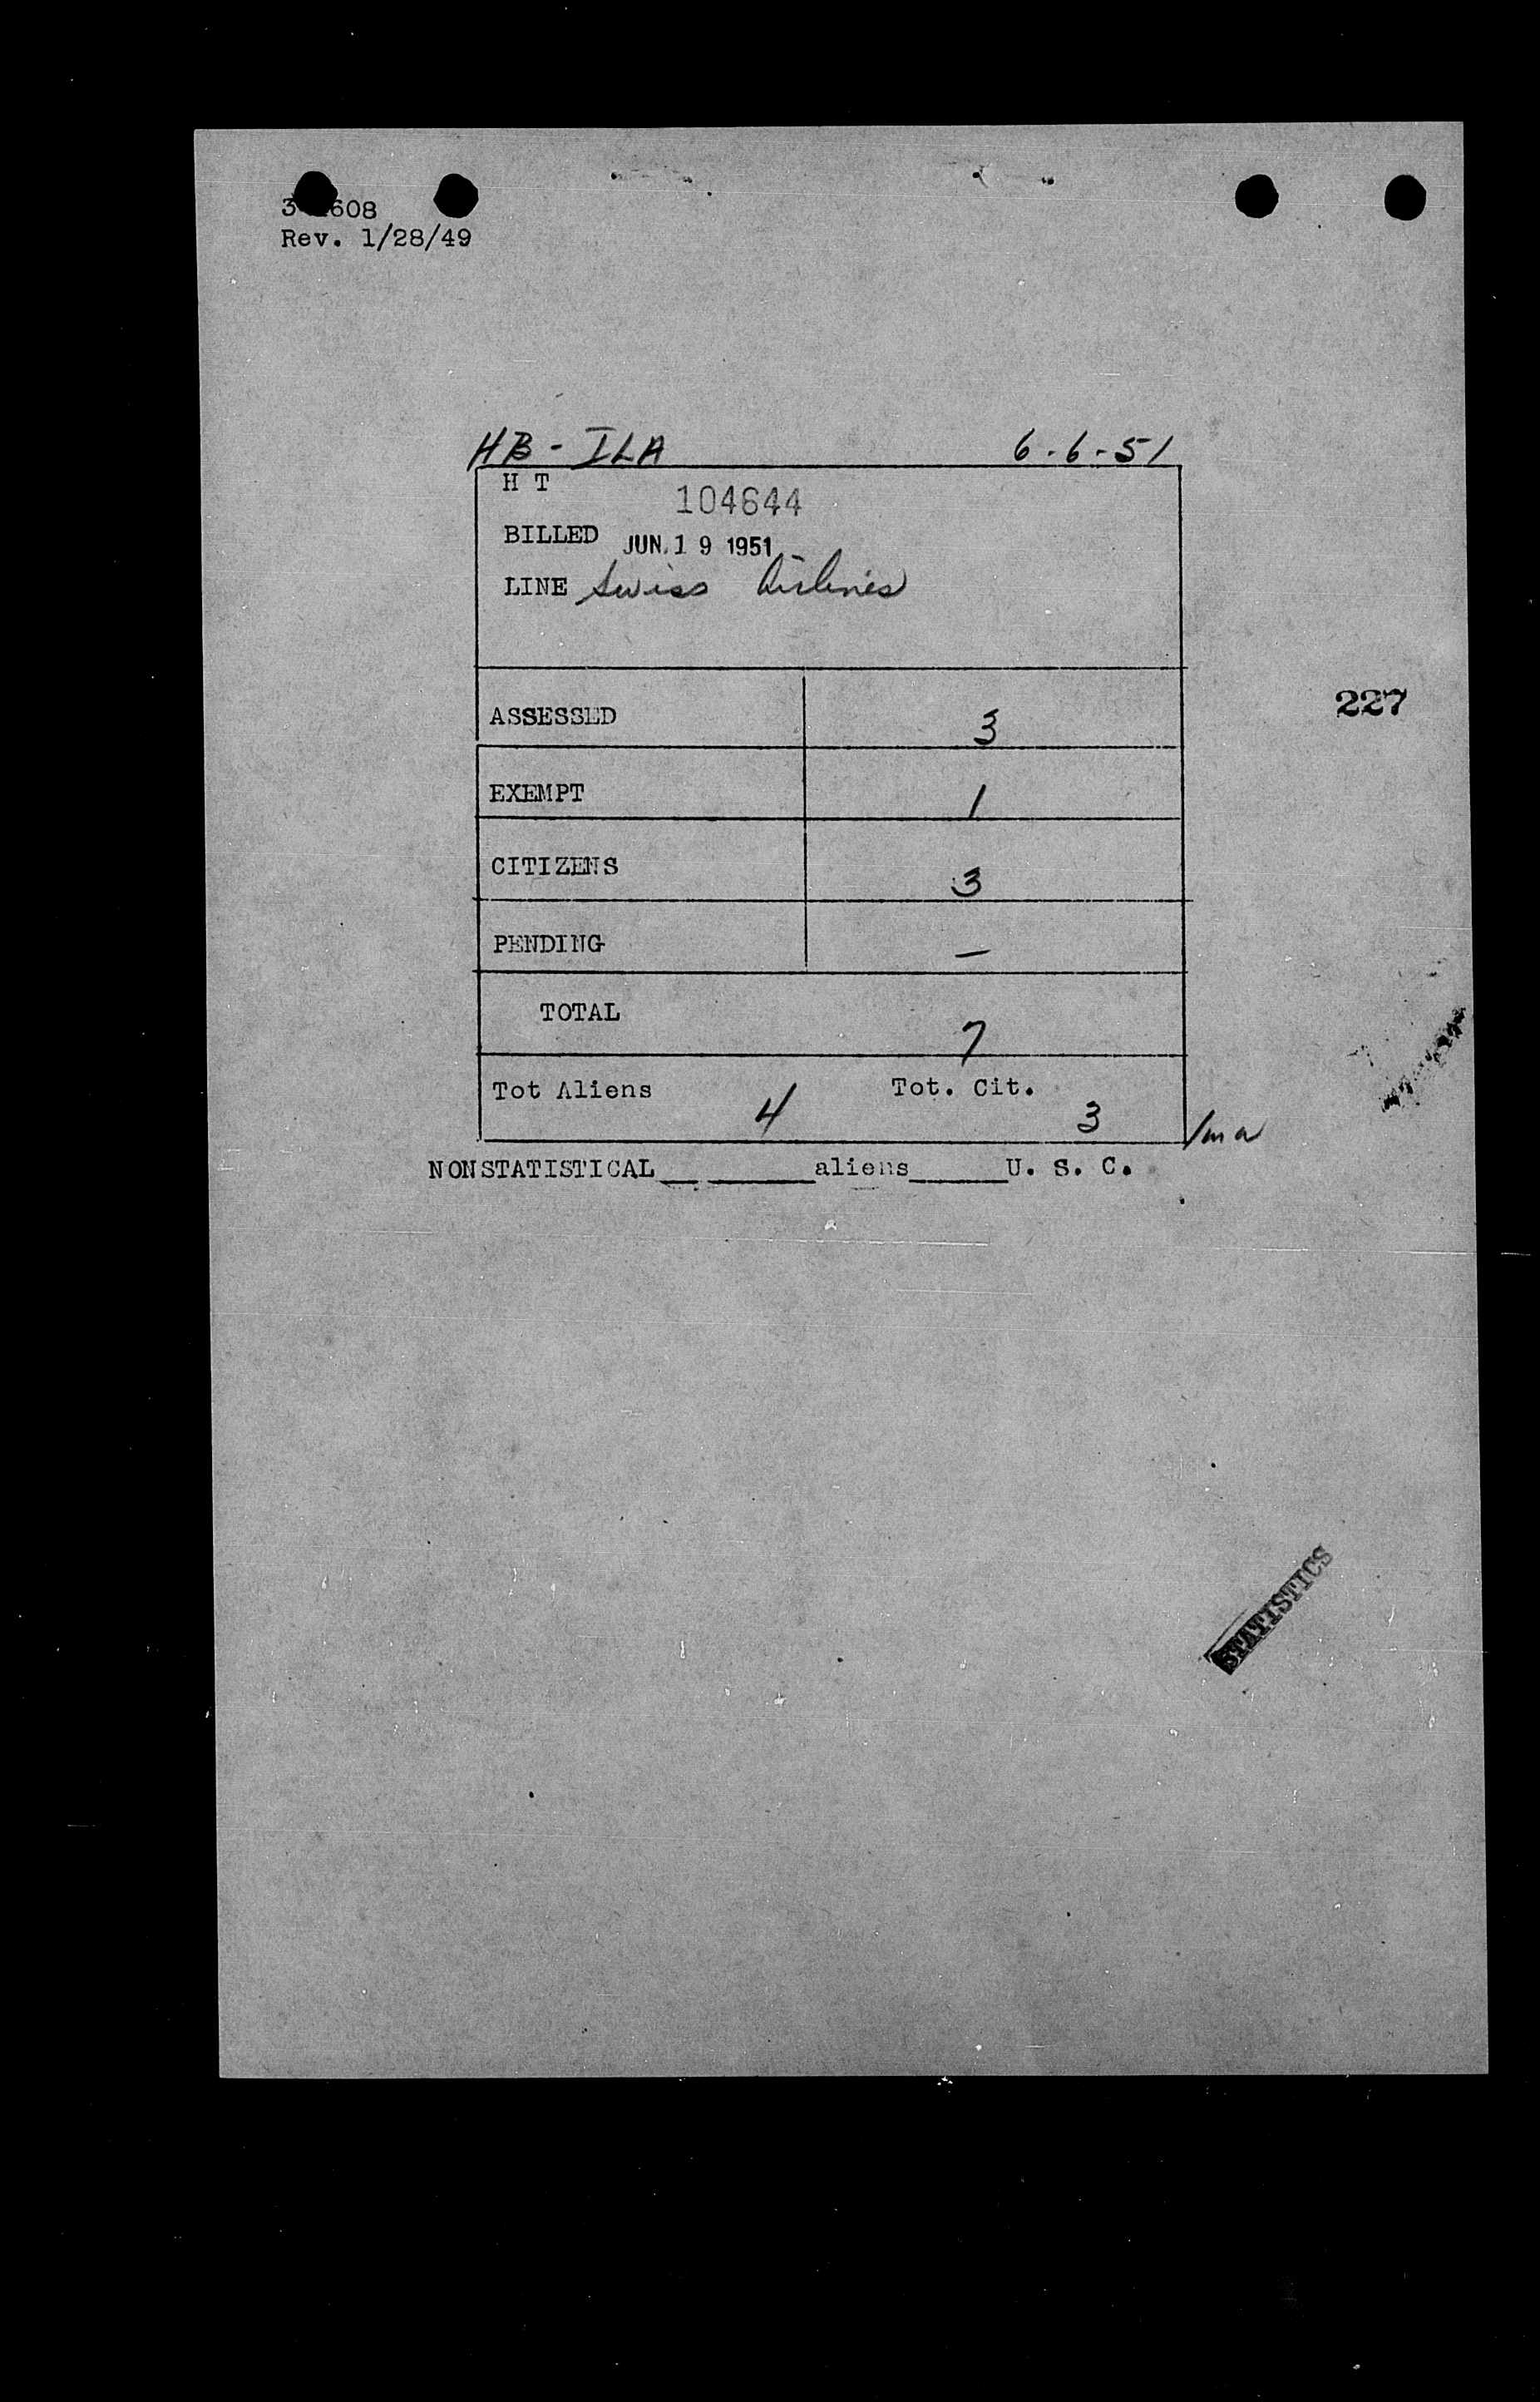 608
Rev. 1/28/49
HB - ILA 6-6-51
H T 104644
BILLED JUN. 19 1951
LINE Swiss Airlines
ASSESSED 3
227
EXEMPT 1
CITIZENS 3
PENDING —
TOTAL 7
Tot Aliens 4 Tot. Cit. 3
NONSTATISTICAL__ ______aliens_____U. S. C.
STATISTICS